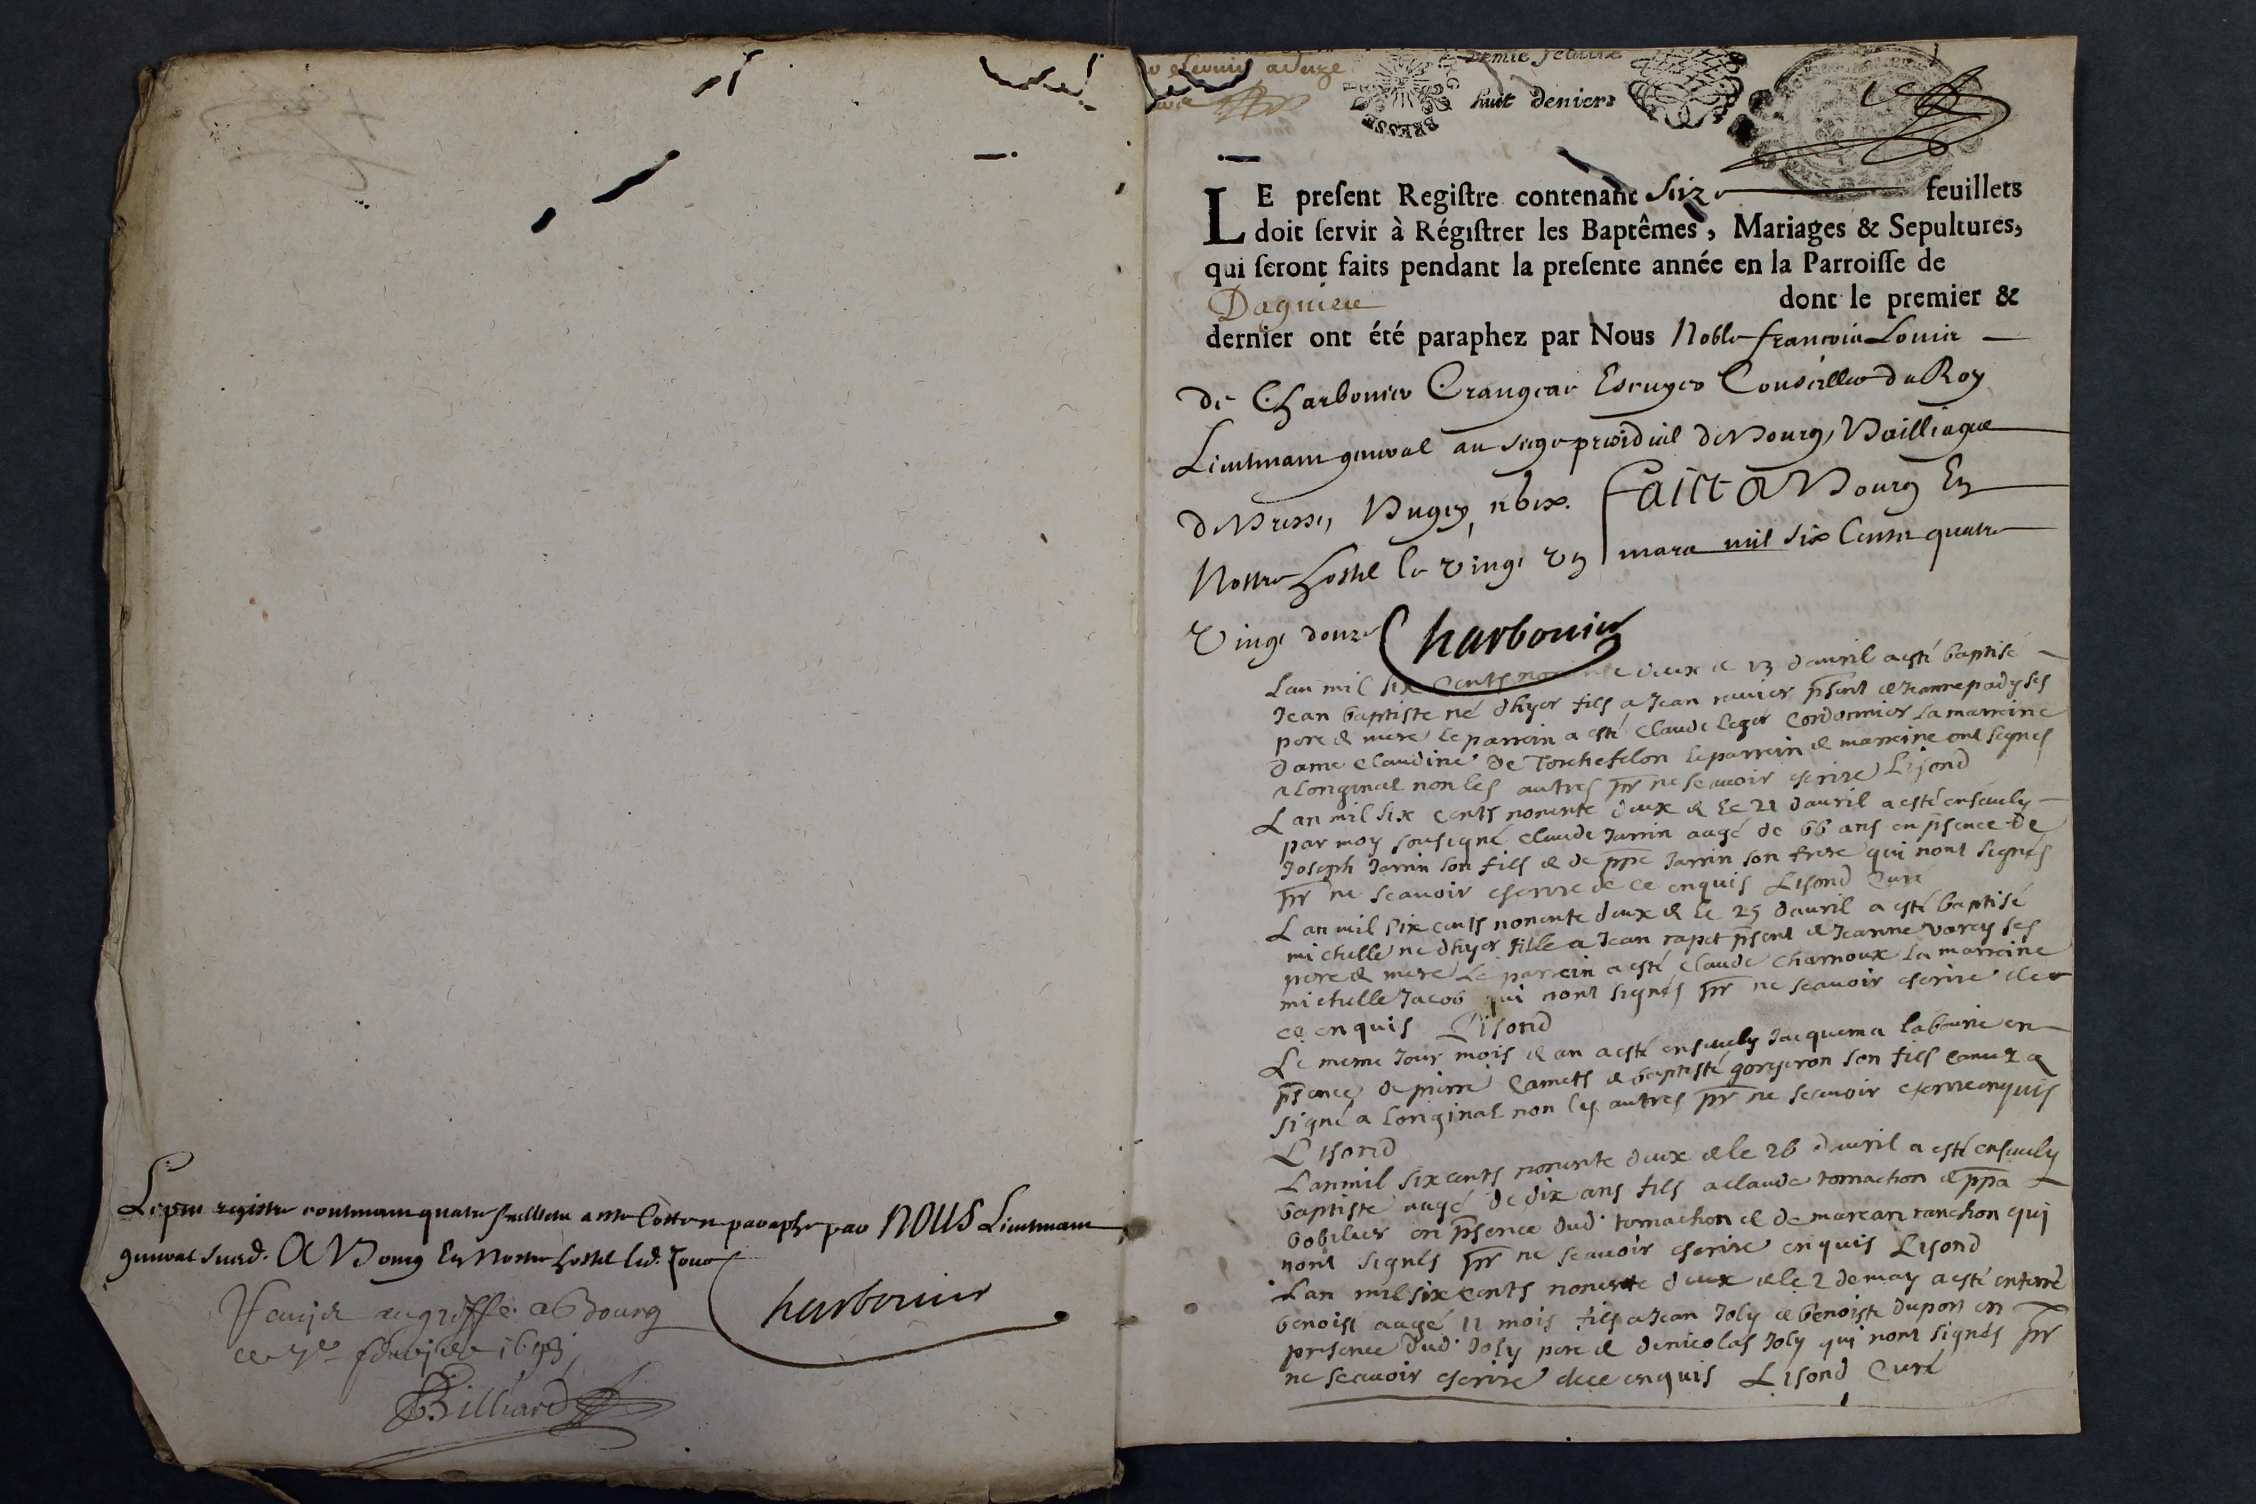 Le pnt registre contenant quatre feuillets a esté Cotté et paraphé par NOUS Lieutenant
general susd. A Bourg En Nostre hostel led. Jour
Charbonier
au griffe a Bourg
ce 7e
Billiard
demie feuille
BRESSE
huit deniers
LE present Registre contenant Six feuillets
doit servir à Régistrer les Baptêmes, Mariages & Sepultures,
qui seront faits pendant la presente année en la Parroisse de
Dagniere dont le premier &
dernier ont été paraphez par Nous Noble François Louis
de Charbonier Crangeac Escuyer Conseiller du Roy
Lieutenant general au siege presidial de Bourg, Bailliage
de Bresse, Bugey, Faict A Bourg En
Nostre hostel le vingt un mars mil six Cents quatre
vingt douze Charbonier
Lan mil six Cents nonente deux & 13 davril a esté baptisé
Jean baptiste né dhyer fils a Jean ravier psent & Jeanne pody ses
pere & mere le parrein a esté Claude leger Cordonnier la marreine
dame Claudine de Torchefelon le parrein & marreine ont signés
a loriginal non les autres pr ne scavoir escrire Lisond
Lan mil six cents nonente deux & le 21 davril a esté ensevely
par moy sousigné Claude Jarrin aagé de 66 ans en psence de
Joseph Jarrin son fils & de ppe Jarrin son frere qui nont signés
pr ne scavoir escrire de ce enquis Lisond Curé
Lan mil six cents nonente deux & le 25 davril a esté baptisé
michelle ne dhyer fille a Jean rapet psent & Jeanne varey ses
pere & mere Le parrein a esté Claude Charnoux la marreine
michelle Jacob qui nont signés pr ne scavoir escrire de
ce enquis Lisond
Le meme Jour mois & an a esté ensevely Jaquema labourie en
psence de pierre Camets & baptiste gorjeron son fils Camet a
signé a loriginal non les autres pr ne scavoir escrire enquis
Lisond
Lan mil six cents nonente deux & le 26 davril a esté ensevely
baptiste aagé de dix ans fils a Claude tornachon & ppa
bobiluer en psence dud. tornachon & de marcan ranchon qui
nont signés pr ne scavoir escrire enquis Lisond
Lan mil six cents nonente deux & le 2 de may a esté enterré
benoist aagé 11 mois fils a Jean Joly & benoiste dupon en
presence dud. Joly pere & de nicolas Joly qui nont signés pr
ne scavoir escrire de ce enquis Lisond Curé